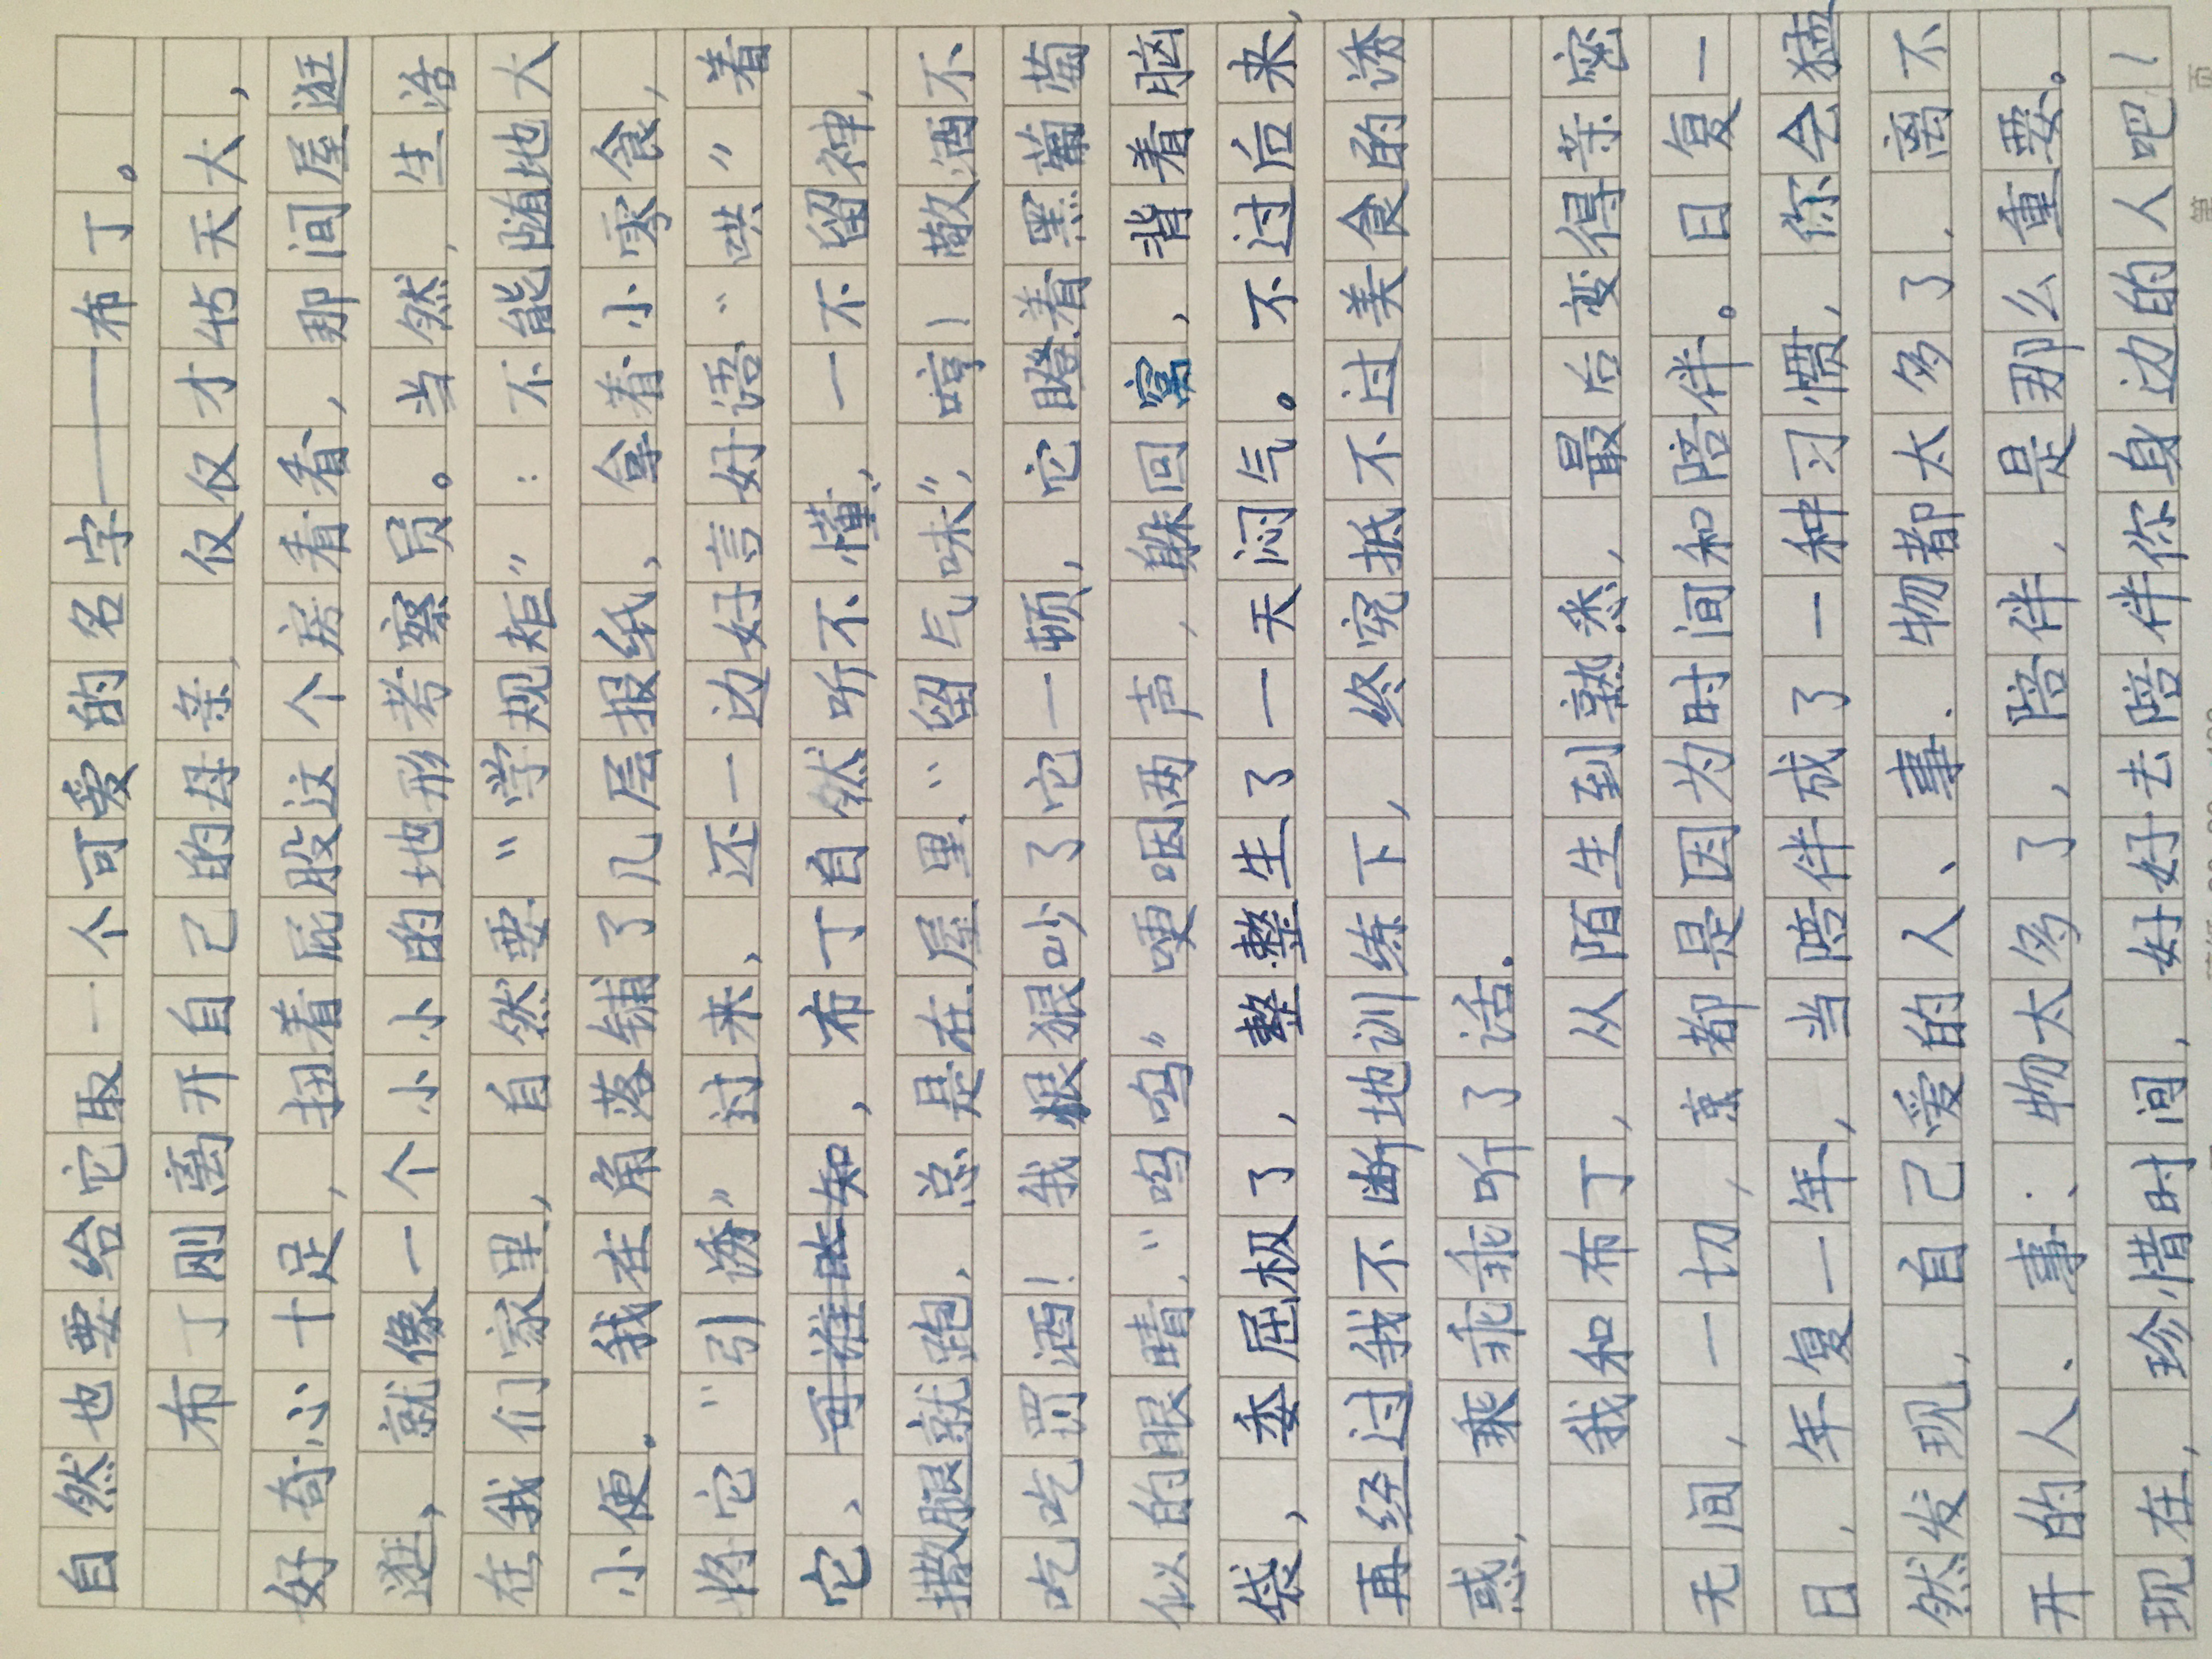 自然也要给它取一个可爱的名字——布丁。
布丁刚离开自己的母亲，仅仅才45天大，
好奇心十足，扭着屁股这个房看看，那间屋逛
逛，就像一个小小的地形考察员。当然，生活
在我们家里，自然要“学规矩”：不能随地大
小便。我在角落铺了几层报纸、拿着小零食，
将它“引诱”过来，还一边好言好语“哄”着
它、可谁知，布丁自然听不懂，一不留神，
撒腿就跑，总是在屋里“留气味”，哼！敬酒不
吃吃罚酒！我狠狠吵了它一顿，它瞪着黑葡萄
似的眼睛，“呜呜”哽咽两声，躲回窝，背着脑
袋，委屈极了，整整生了一天闷气。不过后来，
再经过我不断地训练下，终究抵不过美食的诱
惑，乘乖乖听了话．
我和布丁，从陌生到熟悉，最后变得亲密
无间，一切，京都是因为时间和陪伴。日复一
日，年复一年，当陪伴成了一种习惯，你会猛
然发现，自己爱的人、事、物都太多了，离不
开的人、事、物太多了，陪伴，是那么重要。
现在，珍惜时间，好好去陪伴你身边的人吧！
第 页